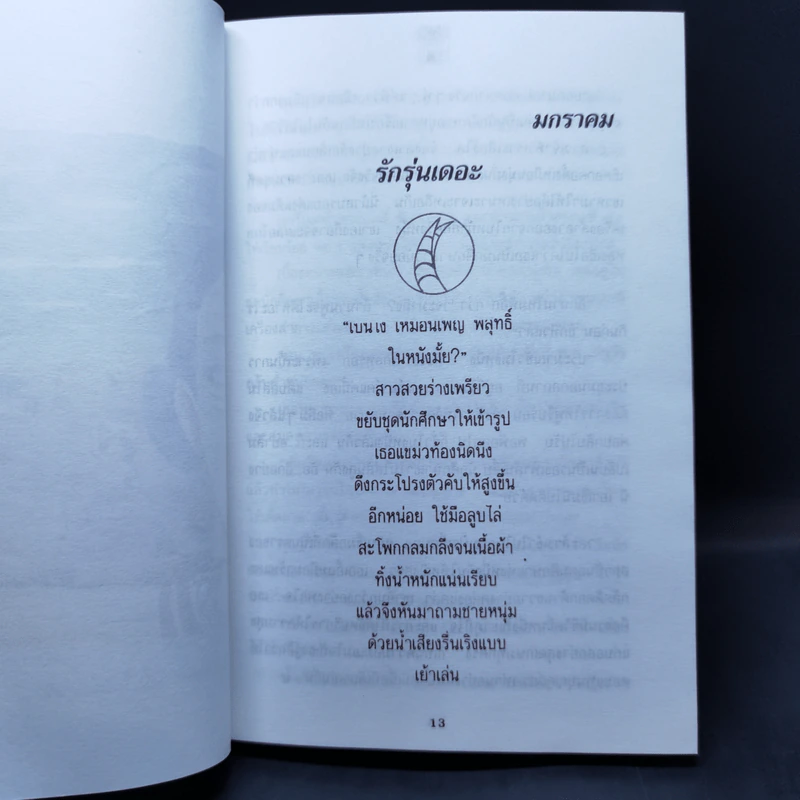 มกราคม
รักรุ่นเดอะ
เหมือนเพ็ญ พิสุทธิ์
ในหนังมั้ย?"
สาวสวยร่างเพรียว
ขยับชุดนักศึกษาให้เข้ารูป
เธอแขม่วท้องนิดนึง
ดึงกระโปรงตัวคับให้สูงขึ้น
อีกหน่อย ใช้มือลูบไล่
สะโพกกลมกลึงจนเนื้อผ้า
ทิ้งน้ำหนักแน่นเรียบ
แล้วจึงหันมาถามชายหนุ่ม
ด้วยน้ำเสียงรื่นเริงแบบ
เย้าเล่น
13